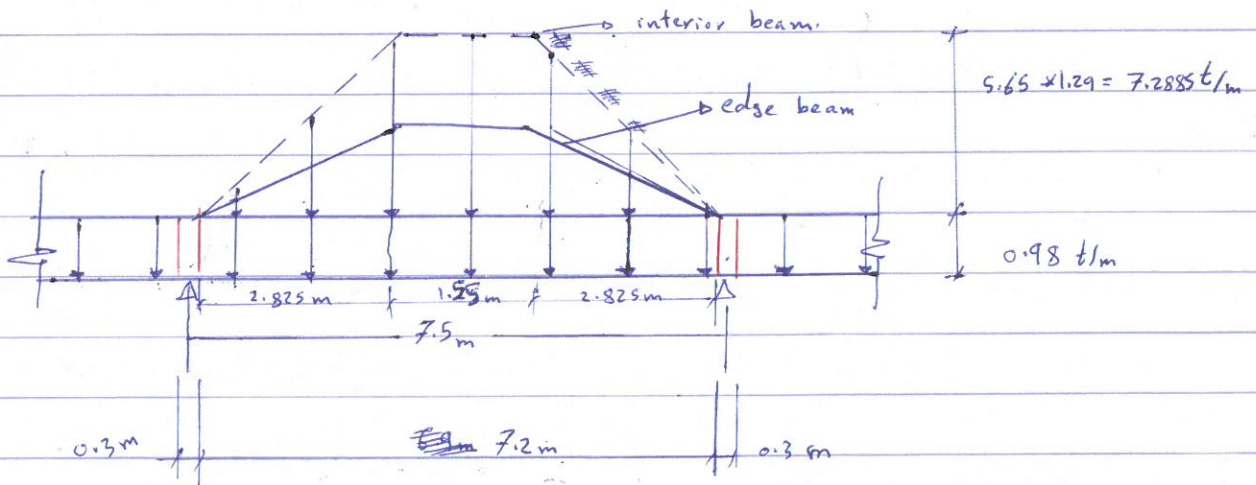 interior beam.
5.65 *1.29 = 7.2885 t/m
edge beam
0.98 t/m
2.825 m 1.55 m 2.825 m
7.5 m
0.3 m 7.2 m 0.3 m